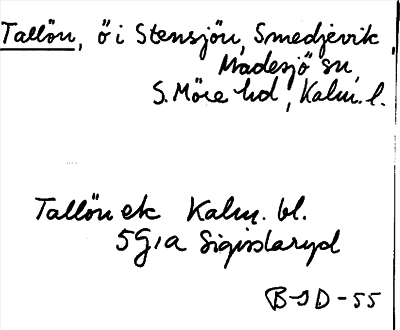 Tallön, ö i Stensjön, Smedjevik,
Madesjö sn,
S. Möre hd, Kalm. l.
Tallön ek Kalm. bl.
5G, a
BSD-55